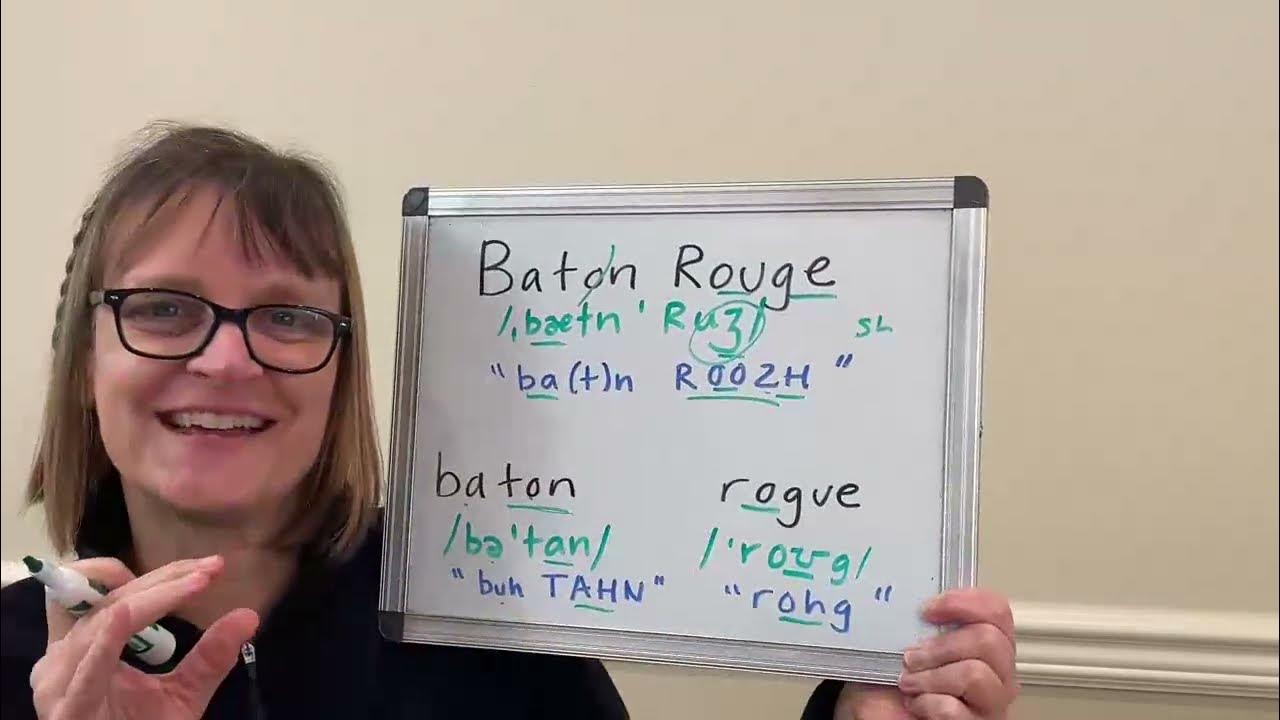 Baton Rouge
/ˌbætn ˈRuʒ/
sh
"ba(t)n ROOZH"
baton rogue
/bəˈtan/ /ˈroʊg/
"buh TAHN" "rohg"